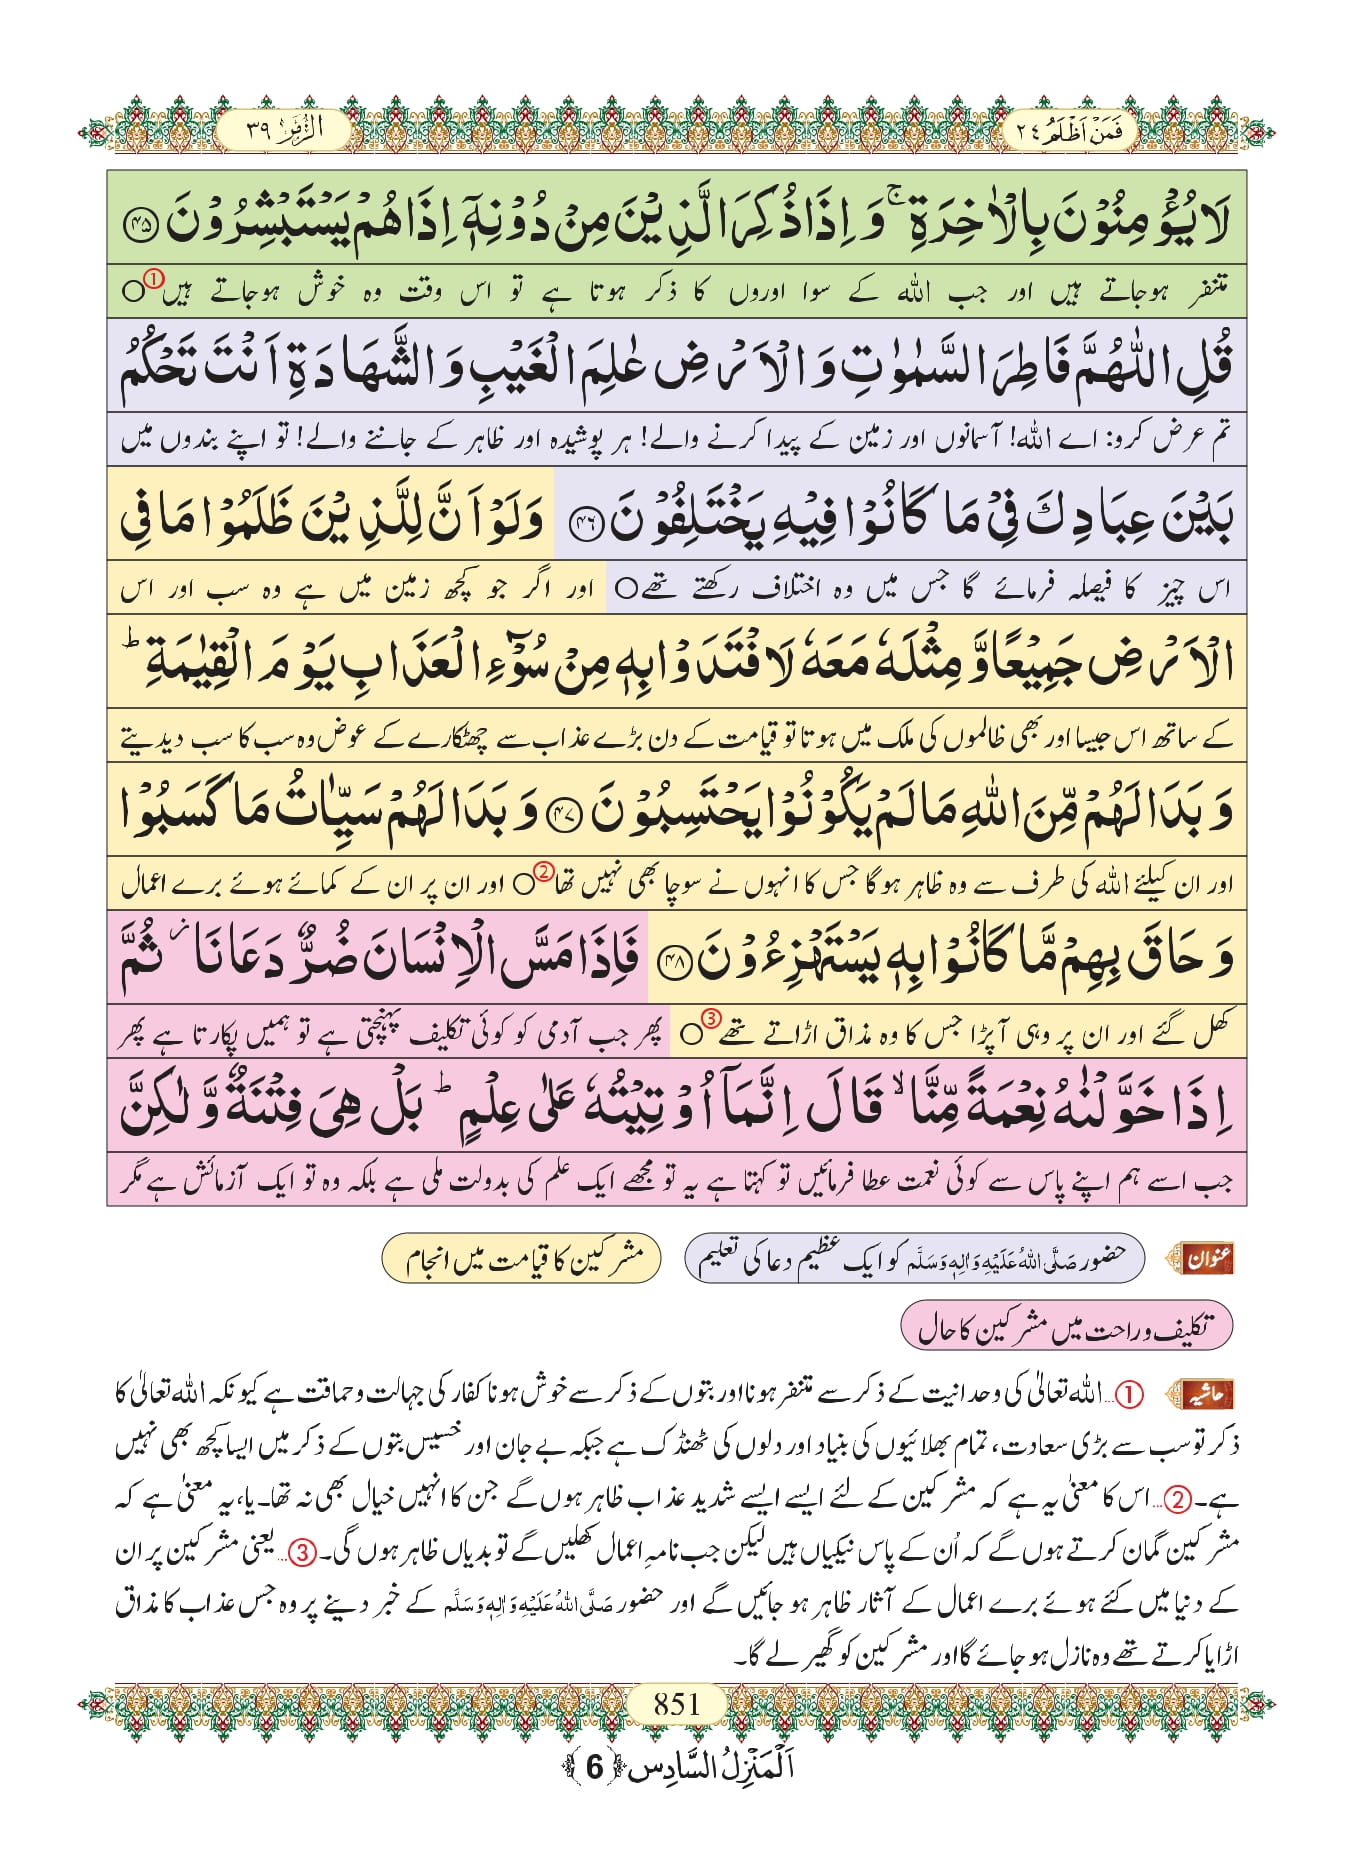 فَمَنْ اَظْلَمُ ٢٤
الزُّمَر ٣٩
لَا یُؤْمِنُوْنَ بِالْاٰخِرَةِ ۚ وَ اِذَا ذُكِرَ الَّذِیْنَ مِنْ دُوْنِهٖۤ اِذَا هُمْ یَسْتَبْشِرُوْنَ ﴿۴۵﴾
متنفر ہوجاتے ہیں اور جب اللہ کے سوا اوروں کا ذکر ہوتا ہے تو اس وقت وہ خوش ہوجاتے ہیں ①○
قُلِ اللّٰهُمَّ فَاطِرَ السَّمٰوٰتِ وَ الْاَرْضِ عٰلِمَ الْغَیْبِ وَ الشَّهَادَةِ اَنْتَ تَحْكُمُ
تم عرض کرو: اے اللہ! آسمانوں اور زمین کے پیدا کرنے والے! ہر پوشیدہ اور ظاہر کے جاننے والے! تو اپنے بندوں میں
بَیْنَ عِبَادِكَ فِیْ مَا كَانُوْا فِیْهِ یَخْتَلِفُوْنَ ﴿۴۶﴾ وَ لَوْ اَنَّ لِلَّذِیْنَ ظَلَمُوْا مَا فِی
اس چیز کا فیصلہ فرمائے گا جس میں وہ اختلاف رکھتے تھے○ اور اگر جو کچھ زمین میں ہے وہ سب اور اس
الْاَرْضِ جَمِیْعًا وَّ مِثْلَهٗ مَعَهٗ لَافْتَدَوْا بِهٖ مِنْ سُوْٓءِ الْعَذَابِ یَوْمَ الْقِیٰمَةِ ؕ
کے ساتھ اس جیسا اور بھی ظالموں کی ملک میں ہوتا تو قیامت کے دن بڑے عذاب سے چھٹکارے کے عوض وہ سب کا سب دیدیتے
وَ بَدَا لَهُمْ مِّنَ اللّٰهِ مَا لَمْ یَكُوْنُوْا یَحْتَسِبُوْنَ ﴿۴۷﴾ وَ بَدَا لَهُمْ سَیِّاٰتُ مَا كَسَبُوْا
اور ان کیلئے اللہ کی طرف سے وہ ظاہر ہوگا جس کا انہوں نے سوچا بھی نہیں تھا ②○ اور ان پر ان کے کمائے ہوئے برے اعمال
وَ حَاقَ بِهِمْ مَّا كَانُوْا بِهٖ یَسْتَهْزِءُوْنَ ﴿۴۸﴾ فَاِذَا مَسَّ الْاِنْسَانَ ضُرٌّ دَعَانَا ٘ ثُمَّ
کھل گئے اور ان پر وہی آپڑا جس کا وہ مذاق اڑاتے تھے ③○ پھر جب آدمی کو کوئی تکلیف پہنچتی ہے تو ہمیں پکارتا ہے پھر
اِذَا خَوَّلْنٰهُ نِعْمَةً مِّنَّا ۙ قَالَ اِنَّمَاۤ اُوْتِیْتُهٗ عَلٰى عِلْمٍ ؕ بَلْ هِیَ فِتْنَةٌ وَّ لٰكِنَّ
جب اسے ہم اپنے پاس سے کوئی نعمت عطا فرمائیں تو کہتا ہے یہ تو مجھے ایک علم کی بدولت ملی ہے بلکہ وہ تو ایک آزمائش ہے مگر
عنوان حضور صَلَّی اللہُ عَلَیْهِ وَاٰلِهٖ وَسَلَّم کو ایک عظیم دعا کی تعلیم مشرکین کا قیامت میں انجام
تکلیف و راحت میں مشرکین کا حال
حاشیہ ①...اللہ تعالیٰ کی وحدانیت کے ذکر سے متنفر ہونا اور بتوں کے ذکر سے خوش ہونا کفار کی جہالت و حماقت ہے کیونکہ اللہ تعالیٰ کا
ذکر تو سب سے بڑی سعادت، تمام بھلائیوں کی بنیاد اور دلوں کی ٹھنڈک ہے جبکہ بے جان اور خسیس بتوں کے ذکر میں ایسا کچھ بھی نہیں
ہے۔ ②...اس کا معنیٰ یہ ہے کہ مشرکین کے لئے ایسے ایسے شدید عذاب ظاہر ہوں گے جن کا انہیں خیال بھی نہ تھا۔ یا، یہ معنیٰ ہے کہ
مشرکین گمان کرتے ہوں گے کہ اُن کے پاس نیکیاں ہیں لیکن جب نامہِ اعمال کھلیں گے تو بدیاں ظاہر ہوں گی۔ ③...یعنی مشرکین پر ان
کے دنیا میں کئے ہوئے برے اعمال کے آثار ظاہر ہو جائیں گے اور حضور صَلَّی اللہُ عَلَیْهِ وَاٰلِهٖ وَسَلَّم کے خبر دینے پر وہ جس عذاب کا مذاق
اڑایا کرتے تھے وہ نازل ہو جائے گا اور مشرکین کو گھیر لے گا۔
851
اَلْمَنْزِلُ السَّادِس ﴿6﴾